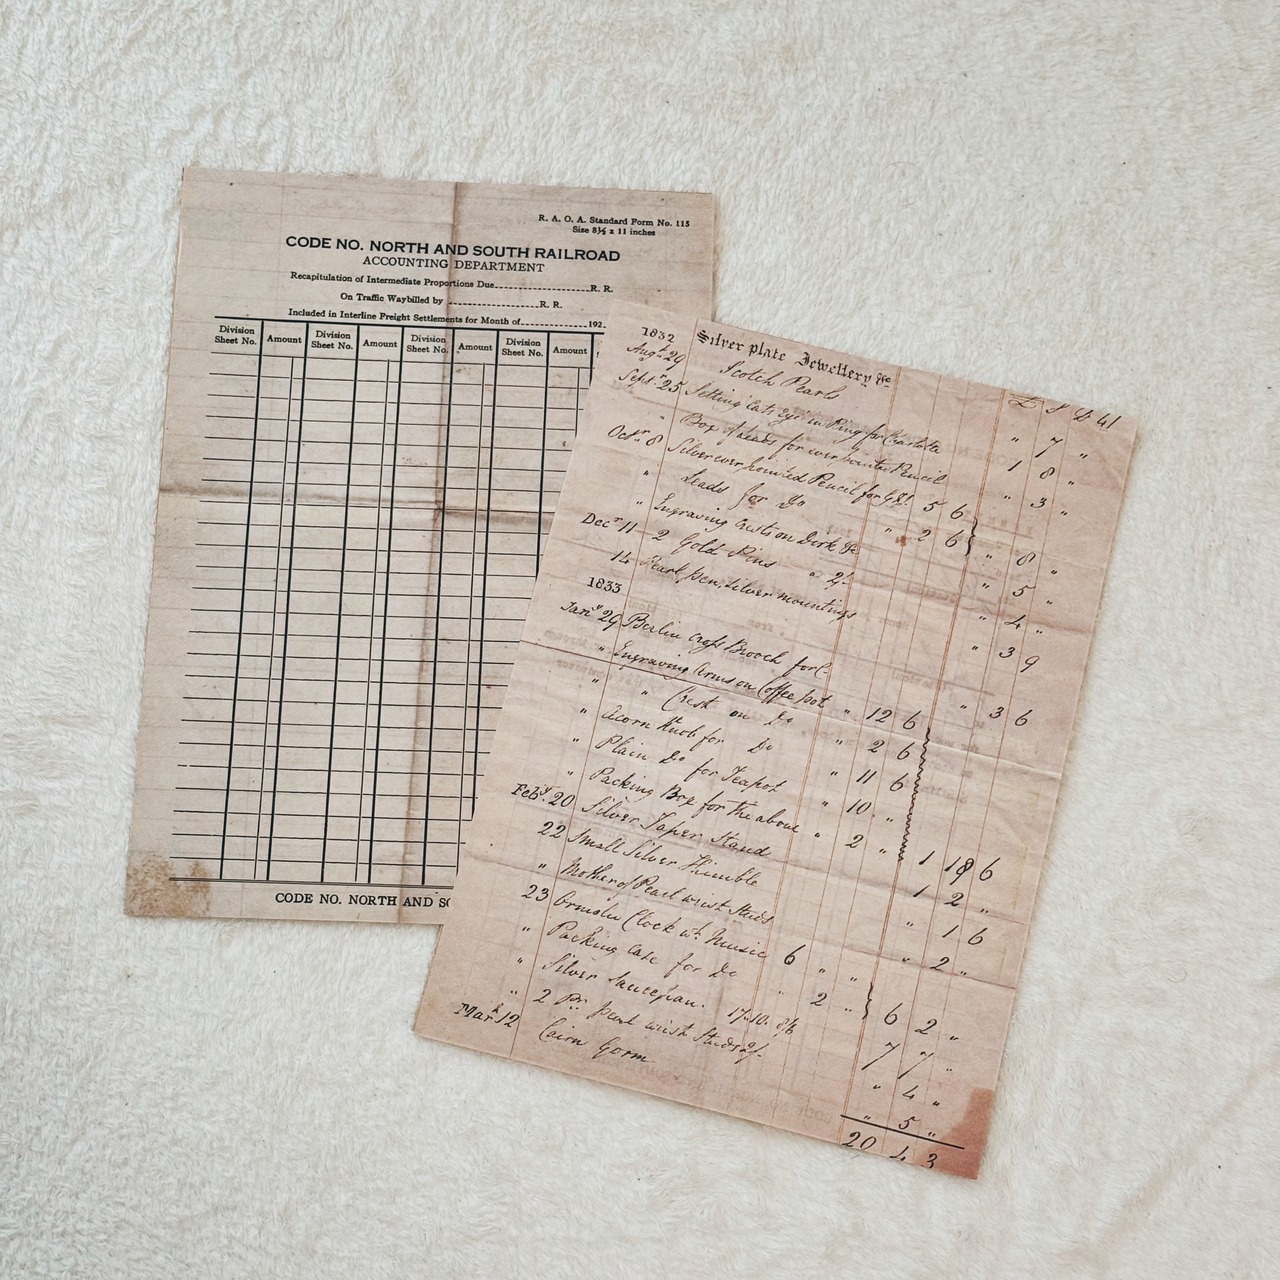 R. A. O. A. Standard Form No. 115
Size 8½ x 11 inches
CODE NO. NORTH AND SOUTH RAILROAD
ACCOUNTING DEPARTMENT
Recapitulation of Intermediate Proportions Due R. R.
On Traffic Waybilled by R. R.
Included in Interline Freight Settlements for Month of 192
Division Sheet No. Amount Division Sheet No. Amount Division Sheet No. Amount Division Sheet No. Amount
CODE NO. NORTH AND SO
1832 Silver Plate Jewellery &c £ S D 41
Augt 29 Scotch Pearls " 7 "
Septr 25 Setting Cats Eye in Ring for Charlotte 1 8 "
" Box of Leads for ever pointed Pencil " 3 "
Octr 8 Silver ever pointed Pencil for 5 6
" Leads for Do " 2 6 " 8 "
" Engraving Crests on Dirk &c " 5 "
Decr 11 2 Gold Pins a 2/- " 4 "
14 Pearl pen, silver mountings " 3 9
1833
Jany 29 Berlin Cross Brooch for C " 3 6
" Engraving Arms on Coffee pot " 12 6
" " Crest on Do " 2 6
" Acorn Knob for Do " 11 6
" Plain Do for Teapot " 10 "
" Packing Box for the above " 2 " 1 18 6
Feby 20 Silver Taper Stand 1 2 "
22 Small Silver Thimble " 1 6
" Mother of Pearl wrist Studs " 2 "
23 Ormolu Clock wt Music 6 " "
" Packing case for Do " 2 " 6 2 "
" Silver Saucepan. 17.10. 8/6 7 7 "
" 2 Pr. pearl wrist Studs 2/- " 4 "
Mar 12 Cairn Gorm " 5 "
20 4 3